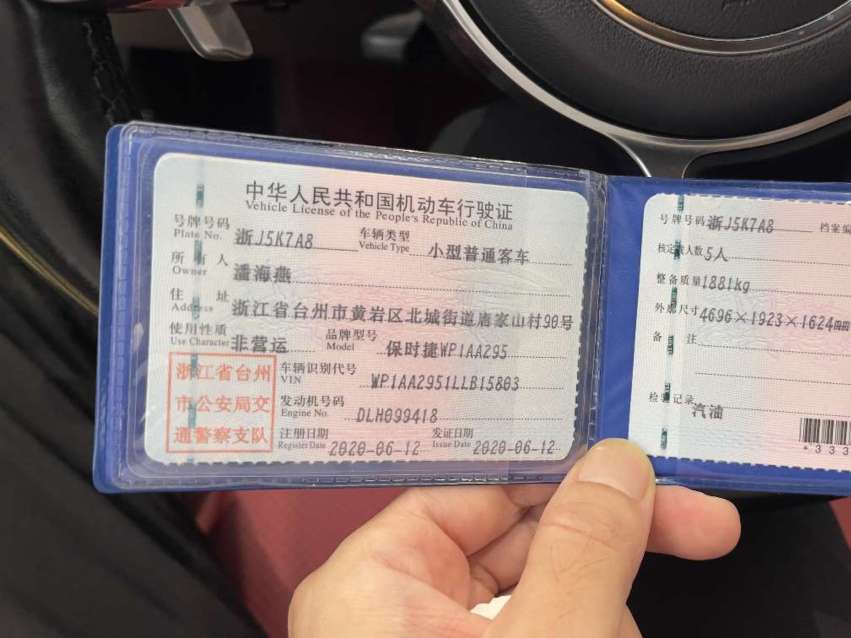 中华人民共和国机动车行驶证
Vehicle License of the People's Republic of China
号牌号码 浙J5K7A8 车辆类型 小型普通客车
Plate No. Vehicle Type
所有人 潘海燕
Owner
住址 浙江省台州市黄岩区北城街道唐家山村90号
Address
使用性质 非营运 品牌型号 保时捷WP1AA295
Use Character Model
浙江省台州
市公安局交
通警察支队
车辆识别代号 WP1AA2951LLB15803
VIN
发动机号码 DLH099418
Engine No.
注册日期 2020-06-12 发证日期 2020-06-12
Register Date Issue Date
号牌号码 浙J5K7A8 档案编
核定载人数 5人
整备质量 1881kg
外廓尺寸 4696×1923×1624
备注
检验记录 汽油
*333